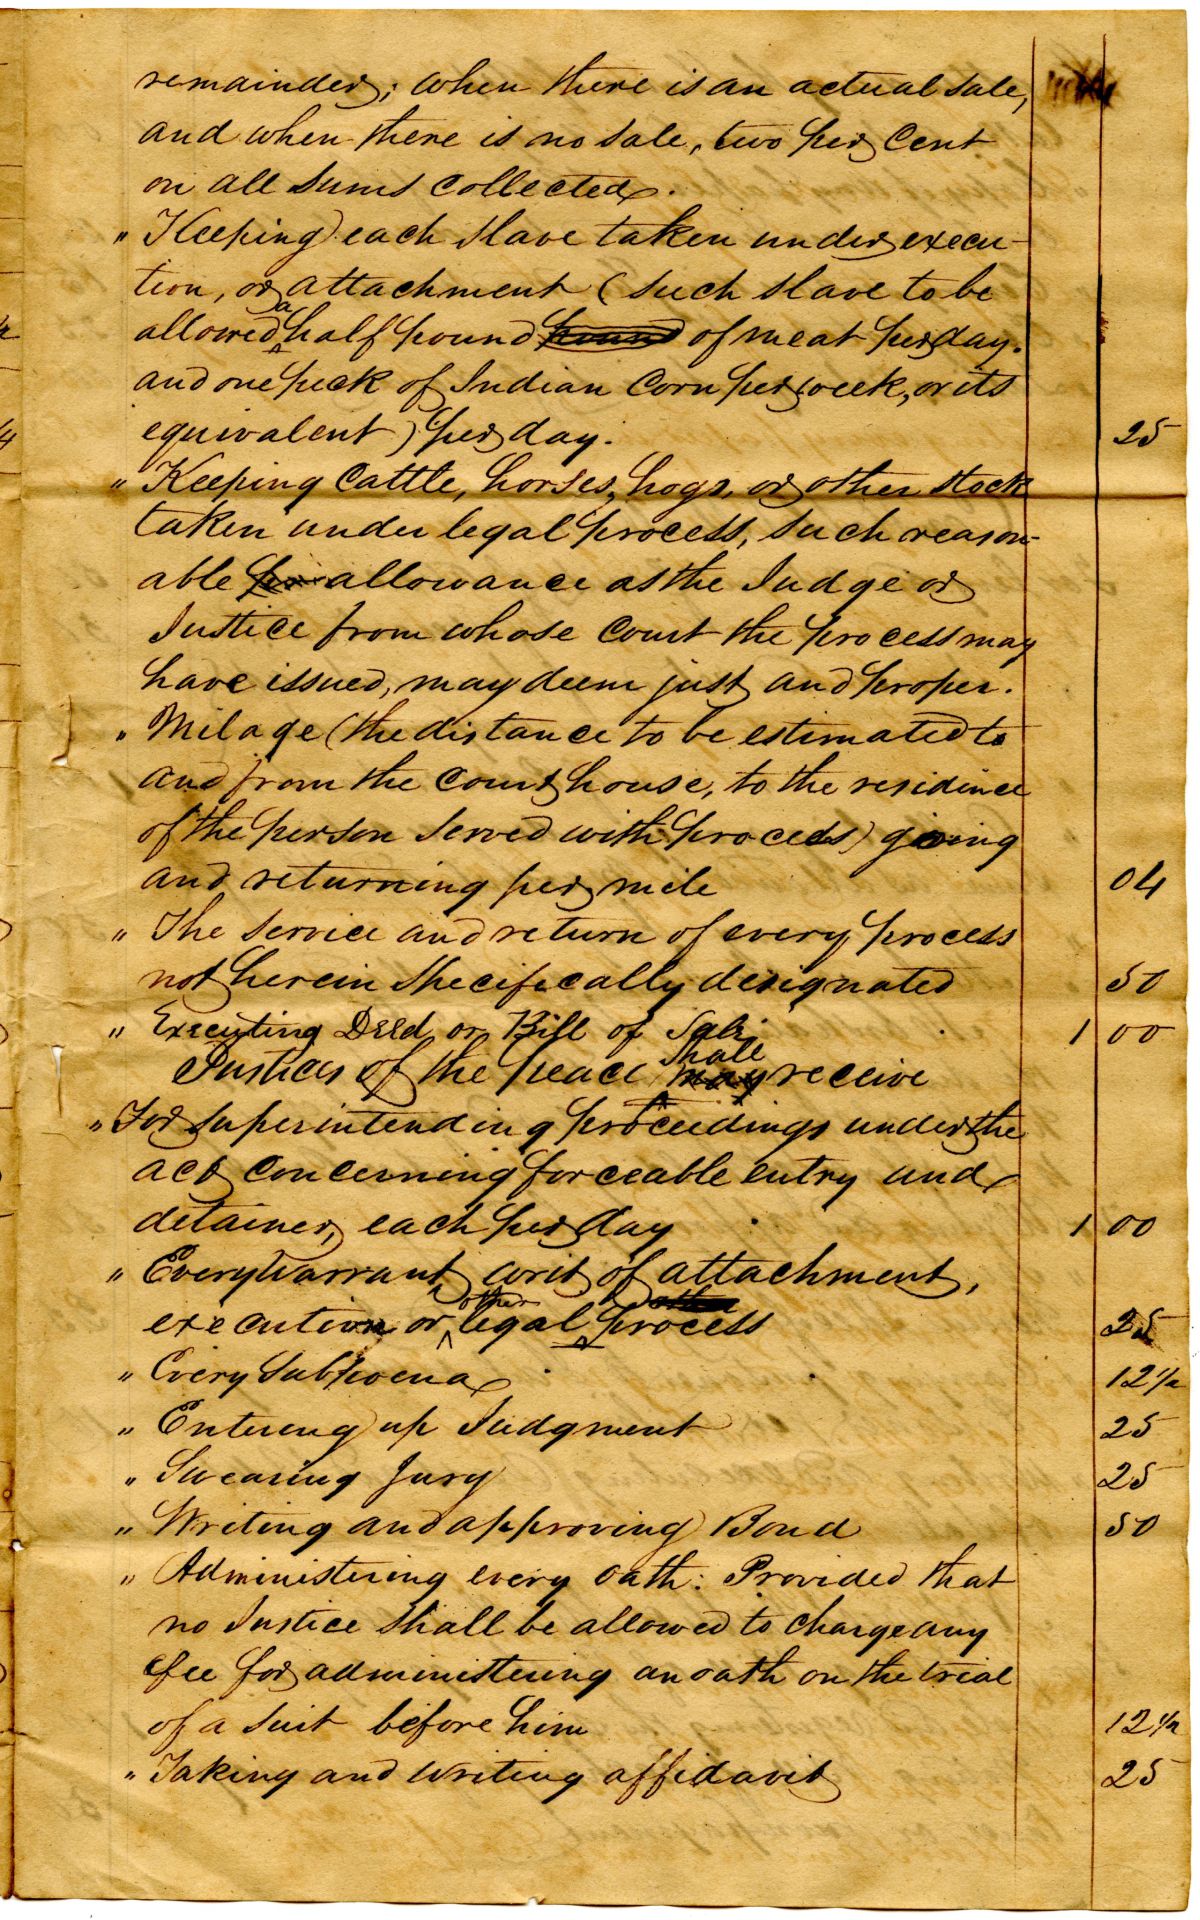 remainder; when there is an actual sale,
and when there is no sale, two per cent
on all sums collected.
" Keeping each slave taken under execu-
tion, or attachment (such slave to be
allowed a half pound pound of meat per day.
and one peck of Indian Corn per week, or its
equivalent) per day. 25
" Keeping Cattle, horses, hogs, or other stock
taken under legal process, such reason-
able allowance as the Judge or
Justice from whose court the process may
have issued, may deem just and proper.
" Milage (the distance to be estimated to
and from the court house, to the residence
of the person served with process) going
and returning per mile 04
" The service and return of every process
not herein specifically designated 50
" Executing Deed or Bill of Sale 1 00
Justices of the peace may shall receive
" For superintending proceedings under the
act concerning forceable entry and
detainer, each per day 1 00
" Every Warrant, writ of attachment,
execution or other legal other process 25
" Every Subpoena 12 1/2
" Entering up Judgment 25
" Swearing Jury 25
" Writing and approving Bond 50
" Administering every oath: Provided that
no Justice shall be allowed to charge any
fee for administering an oath on the trial
of a suit before him 12 1/2
" Taking and writing affidavit 25